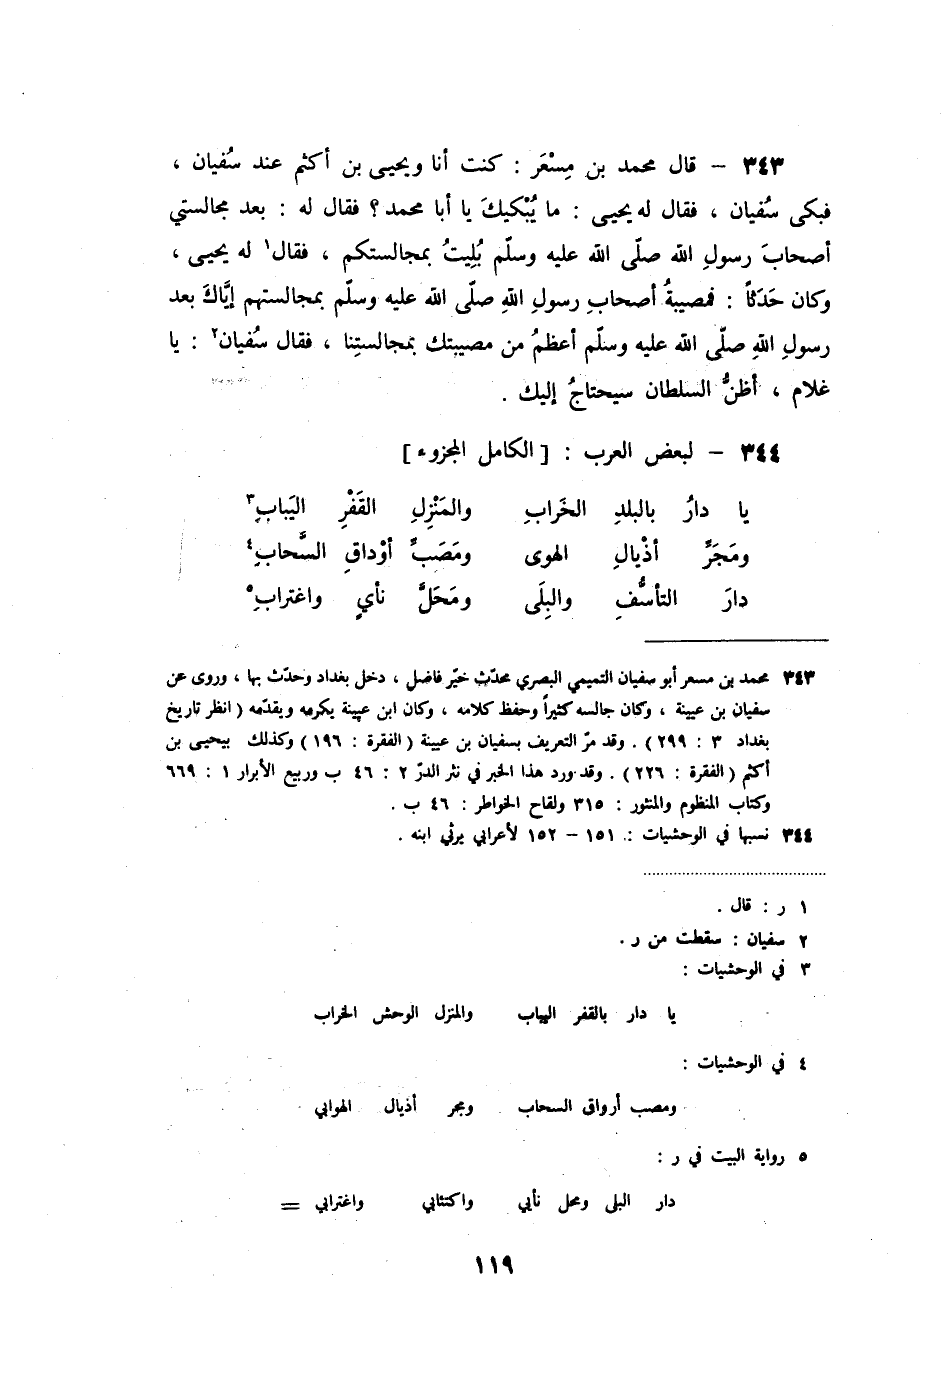 ٣٤٣ – قال محمد بن مِسْعَر : كنت أنا ويحيى بن أكثم عند سُفيان ،
فبكى سُفيان ، فقال له يحيى : ما يُبْكيكَ يا أبا محمد؟ فقال له : بعد مجالستي
أصحابَ رسولِ الله صلّى الله عليه وسلّم بُلِيتُ بمجالستكم ، فقال١ له يحيى ،
وكان حَدَثاً : فمصيبةُ أصحابِ رسولِ اللهِ صلّى الله عليه وسلّم بمجالستهم إيَّاكَ بعد
رسولِ اللهِ صلّى الله عليه وسلّم أعظمُ من مصيبتك بمجالستِنا ، فقال سُفيان٢ : يا
غلام ، أظنُّ السلطان سيحتاجُ إليك .
٣٤٤ – لبعض العرب : [الكامل المجزوء]
يا دارُ بالبلدِ الخَرابِ والمَنْزِلِ القَفْرِ اليَبابِ٣
ومَجَرَّ أذْيالِ الهوى ومَصَبَّ أوْداقِ السَّحابِ٤
دارَ التأسُّفِ والبِلَى ومَحَلَّ نأيٍ واغترابِ٥
٣٤٣ محمد بن مسعر أبو سفيان التميمي البصري محدّث خيّر فاضل ، دخل بغداد وحدّث بها ، وروى عن
سفيان بن عيينة ، وكان جالسه كثيراً وحفظ كلامه ، وكان ابن عيينة يكرمه ويقدّمه (انظر تاريخ
بغداد ٣ : ٢٩٩) . وقد مرّ التعريف بسفيان بن عيينة (الفقرة : ١٩٦) وكذلك بيحيى بن
أكثم (الفقرة : ٢٢٦) . وقد ورد هذا الخبر في نثر الدرّ ٢ : ٤٦ ب وربيع الأبرار ١ : ٦٦٩
وكتاب المنظوم والمنثور : ٣١٥ ولقاح الخواطر : ٤٦ ب .
٣٤٤ نسبها في الوحشيات : ١٥١ – ١٥٢ لأعرابي يرثي ابنه .
١ ر : قال .
٢ سفيان : سقطت من ر .
٣ في الوحشيات :
يا دار بالقفر اليباب والمنزل الوحش الخراب
٤ في الوحشيات :
ومصب أرواق السحاب ومجر أذيال الهوابي
٥ رواية البيت في ر :
دار البلى ومحل نأيي واكتئابي واغترابي =
١١٩